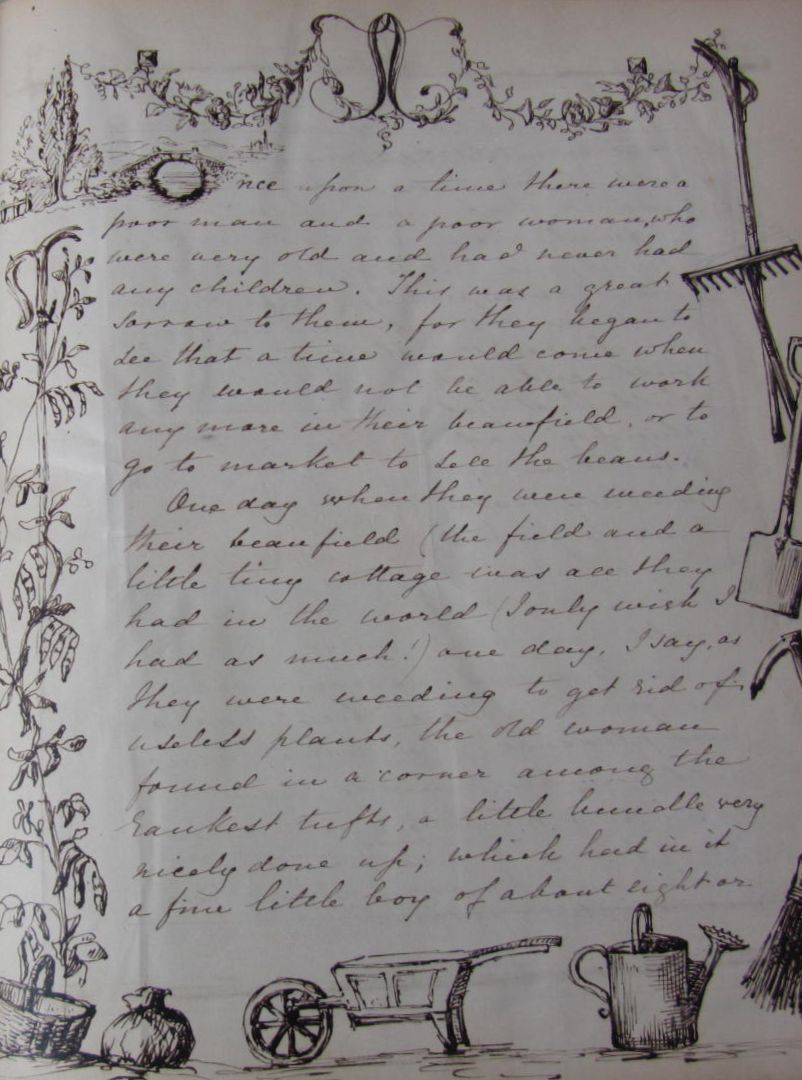 Once upon a time there were a
poor man and a poor woman, who
were very old and had never had
any children. This was a great
sorrow to them, for they began to
see that a time would come when
they would not be able to work
any more in their beanfield, or to
go to market to sell the beans.
One day when they were weeding
their beanfield (the field and a
little tiny cottage was all they
had in the world (I only wish I
had as much!) one day, I say, as
they were weeding to get rid of
useless plants, the old woman
found in a corner among the
rankest tufts, a little bundle very
nicely done up; which had in it
a fine little boy of about eight or